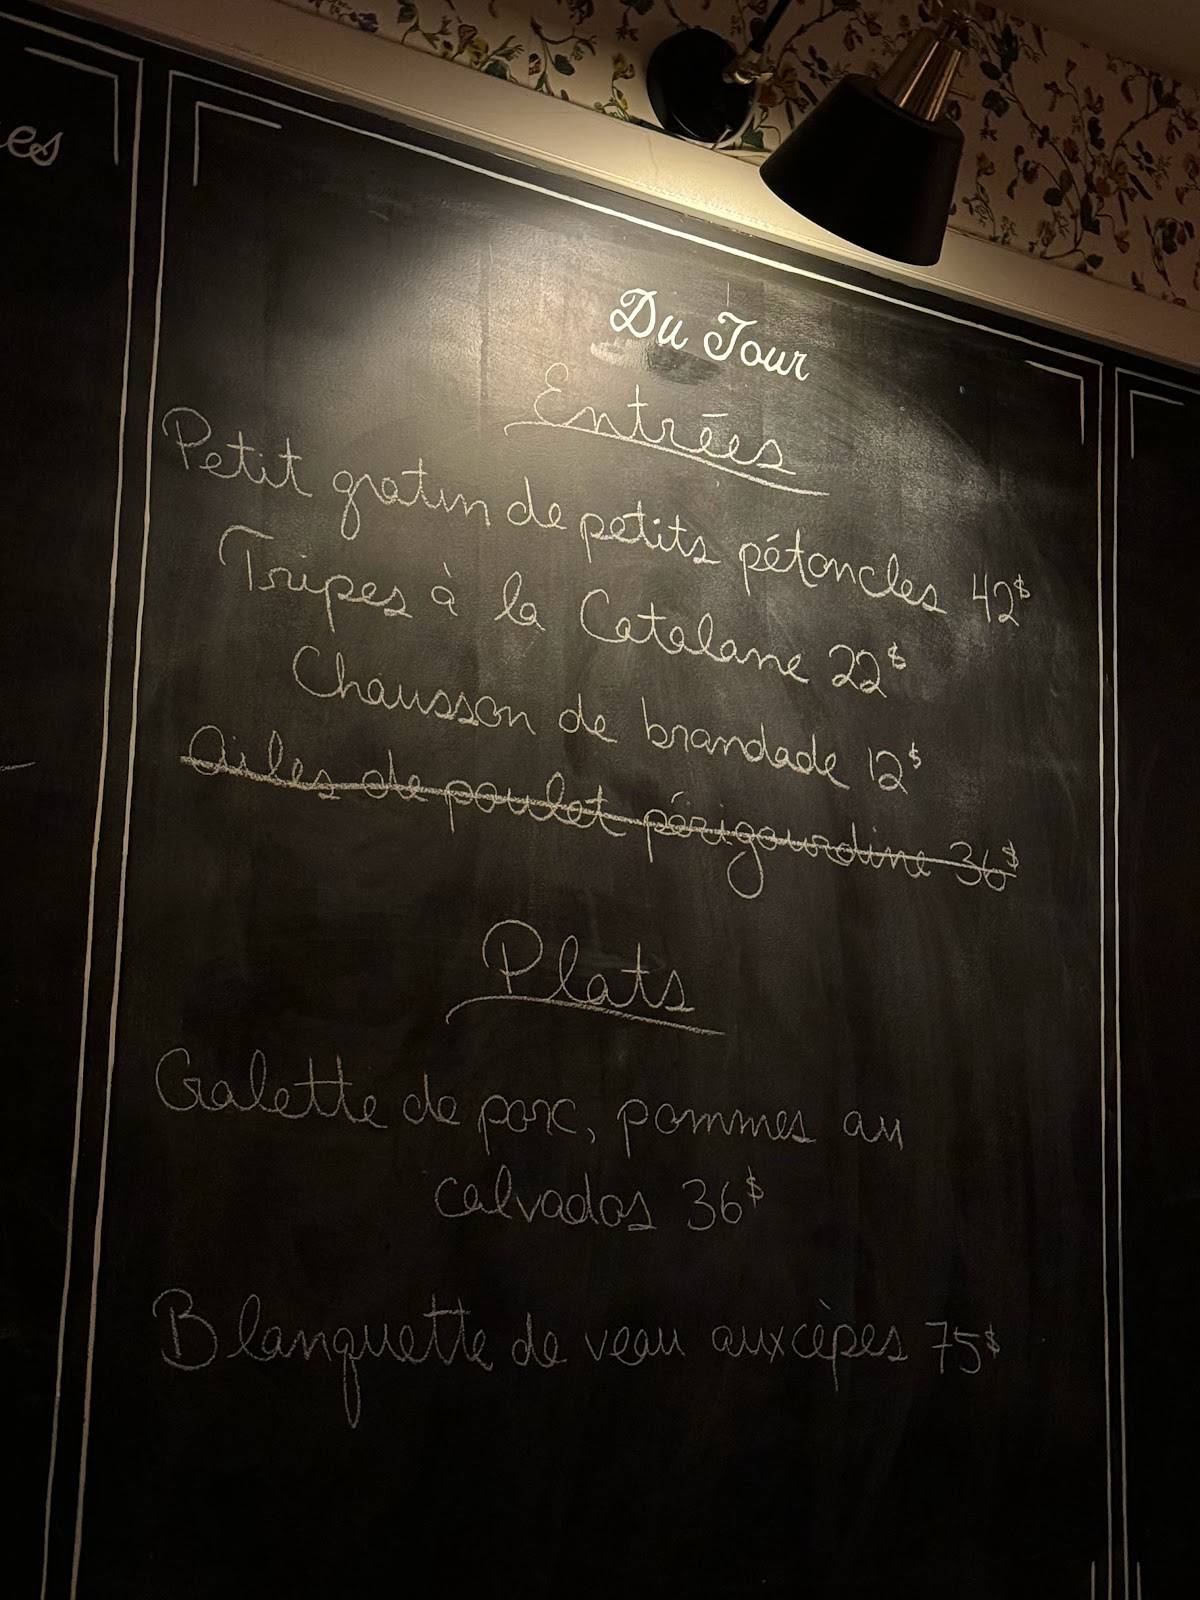 es
Du Jour
Entrées
Petit gratin de petits pétoncles 42$
Tripes à la Catalane 22$
Chausson de brandade 12$
Ailes de poulet périgourdine 36$
Plats
Galette de porc, pommes au
calvados 36$
Blanquette de veau aux cèpes 75$